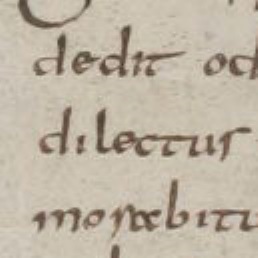 dedit od
dilectus
morabitu